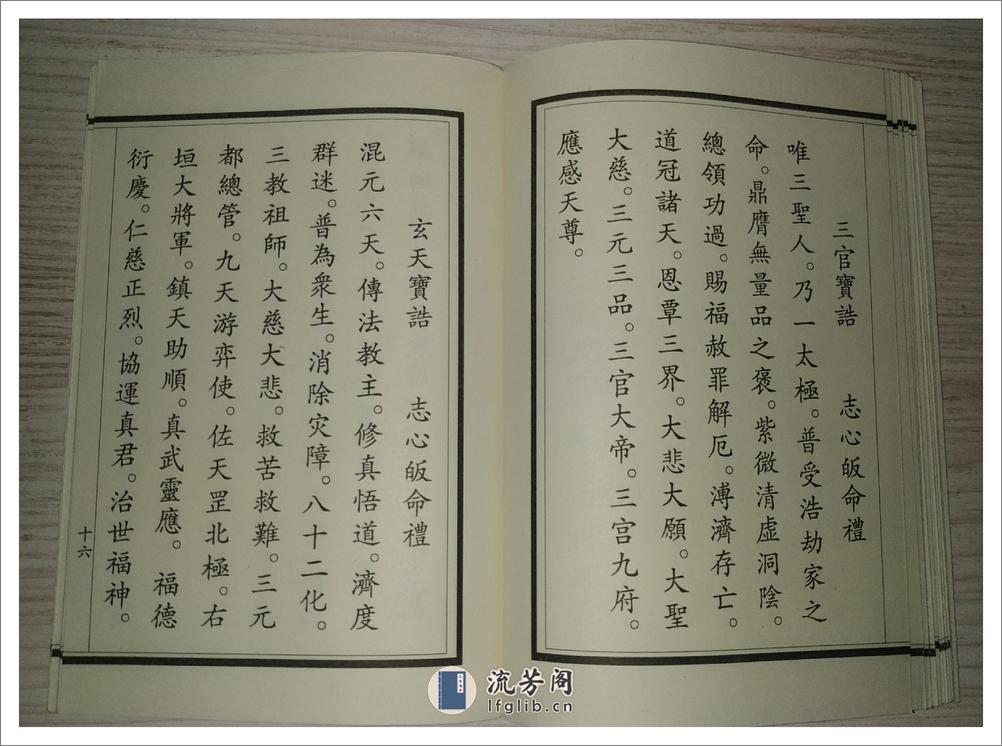 三官寶誥 志心皈命禮
唯三聖人。乃一太極。普受浩劫家之
命。鼎膺無量品之褒。紫微清虛洞陰。
總領功過。賜福赦罪解厄。溥濟存亡。
道冠諸天。恩覃三界。大悲大願。大聖
大慈。三元三品。三官大帝。三宫九府。
應感天尊。
玄天寶誥 志心皈命禮
混元六天。傳法教主。修真悟道。濟度
群迷。普為衆生。消除灾障。八十二化。
三教祖師。大慈大悲。救苦救難。三元
都總管。九天游弈使。佐天罡北極。右
垣大將軍。鎮天助順。真武靈應。福德
衍慶。仁慈正烈。協運真君。治世福神。
十六
流芳阁
lfglib.cn